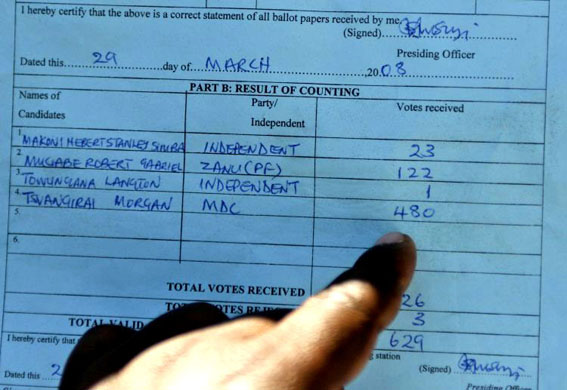 I hereby certify that the above is a correct statement of all ballot papers received by me.
(Signed)
Presiding Officer
Dated this 29 day of MARCH 2008
PART B: RESULT OF COUNTING
Names of Candidates Party/ Independent Votes received
1. MAKONI HEBERT STANLEY SIMBA INDEPENDENT 23
2. MUGABE ROBERT GABRIEL ZANU (PF) 122
3. TOWUNGANA LANGTON INDEPENDENT 1
4. TSVANGIRAI MORGAN MDC 480
5.
6.
TOTAL VOTES RECEIVED 26
VOTES 3
TOTAL VALID 629
I hereby certify that station
(Signed)
Dated this 2 Presiding Officer